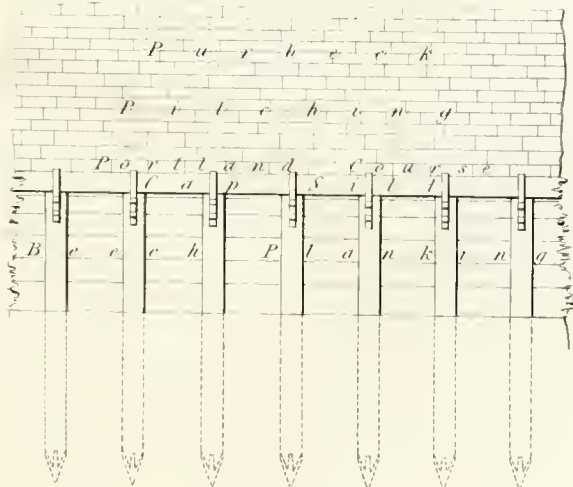 Purbeck
Pitching
Portland Course
Cap Sill
Beech Planking